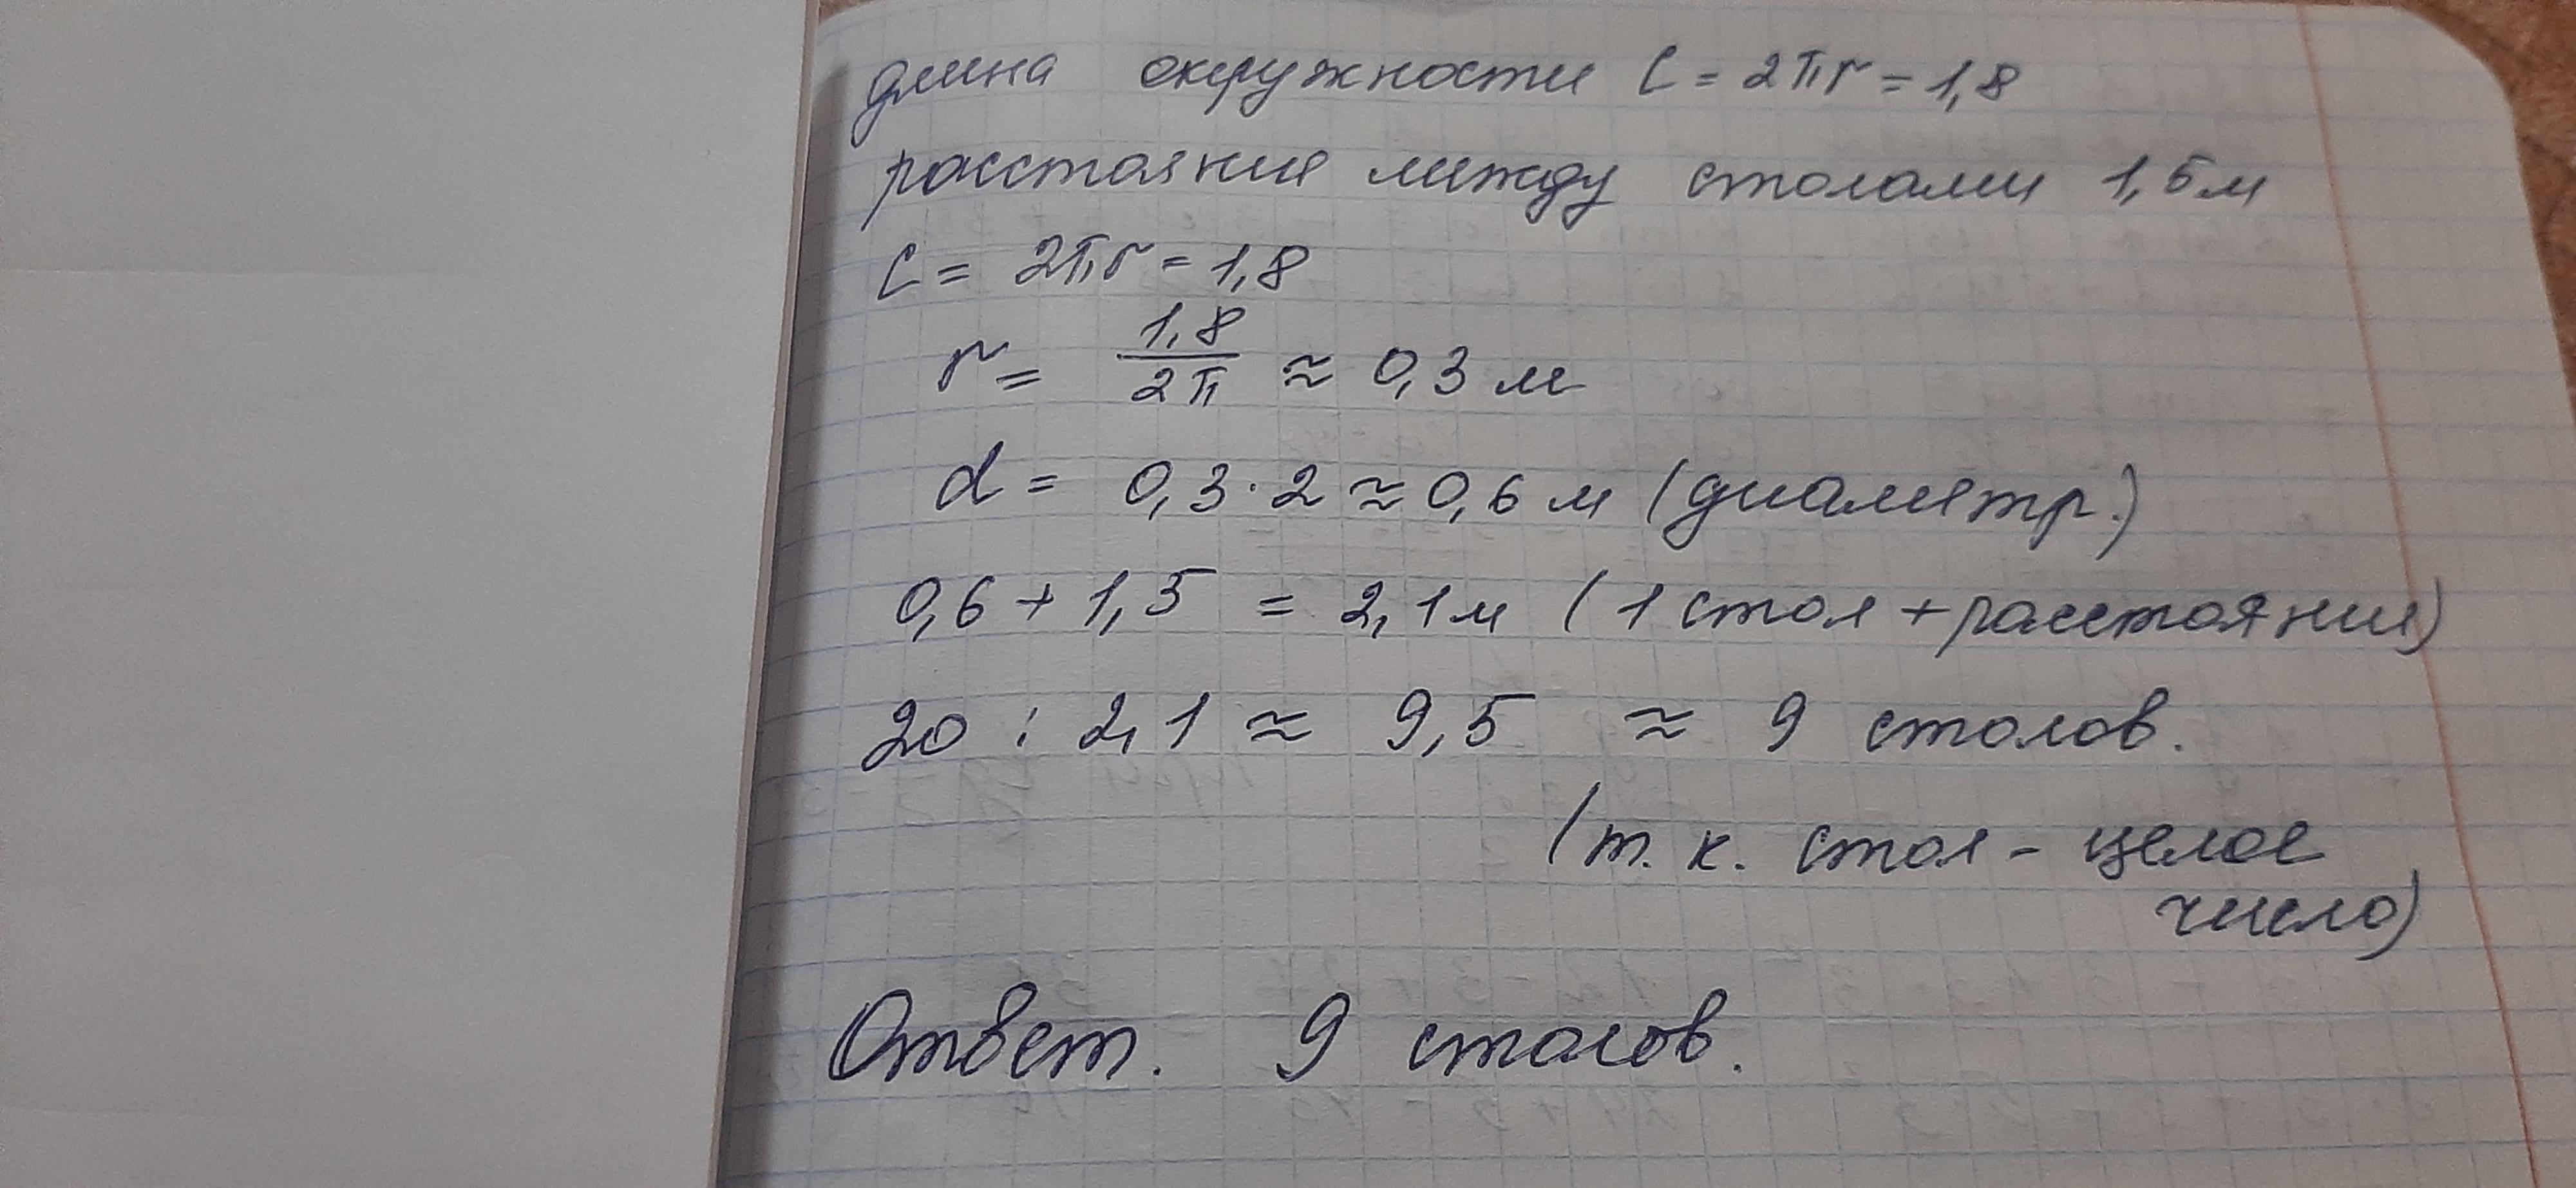 длина окружности C = 2πr = 1,8
расстояние между столами 1,5 м
C = 2πr = 1,8
r = 1,8/2π ≈ 0,3 м
d = 0,3 · 2 ≈ 0,6 м (диаметр.)
0,6 + 1,5 = 2,1 м (1 стол + расстояние)
20 : 2,1 ≈ 9,5 ≈ 9 столов.
(т. к. стол - целое
число)
Ответ. 9 столов.